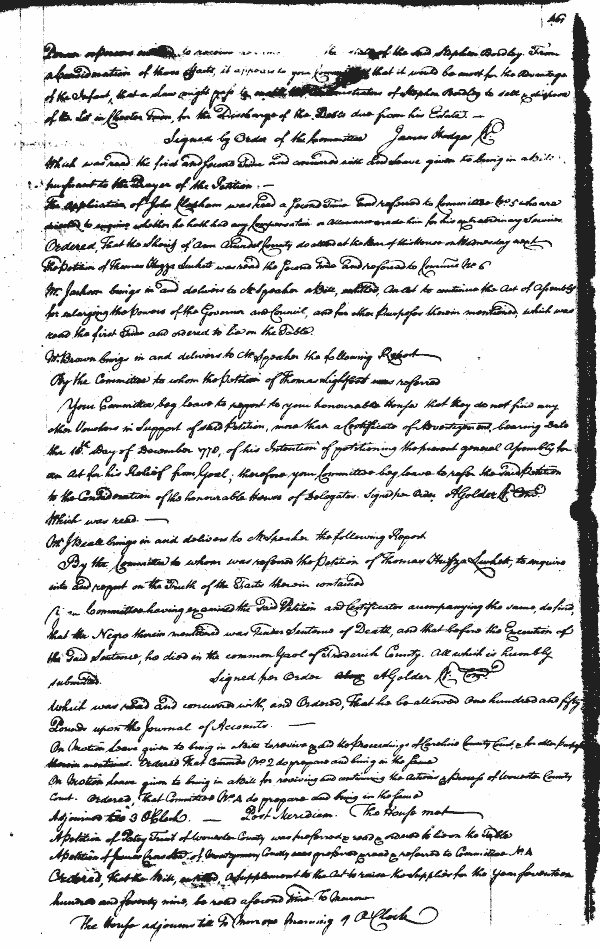 of the said Stephen Bordley. From
a Consideration of those Facts, it appears to your Committee that it would be most for the Advantage
of the Infant, that a Law might pass to enable the Administrators of Stephen Bordley to sell & dispose
of the Lot in Chester Town, for the Discharge of the Debts due from his Estate. —
Signed by Order of the Committee James Hodges Cl.
Which was read the first and second Time and concurred with and Leave given to bring in a Bill
pursuant to the Prayer of the Petition. —
The Application of John Clapham was read a second Time and referred to Committee No. 5 who are
directed to enquire whether he hath had any Compensation or Allowance made him for his extraordinary Services
Ordered, That the Sheriff of Ann Arundel County do attend at the Bar of this House on Wednesday next
The Petition of Thomas Huffa Luckett was read the second Time and referred to Committee No 6
Mr. Jackson brings in and delivers to Mr Speaker a Bill, entitled, An Act to continue the Act of Assembly
for enlarging the Powers of the Governor and Council, and for other Purposes therein mentioned, which was
read the first Time and ordered to lie on the Table.
Mr. Brown brings in and delivers to Mr Speaker the following Report
By the Committee to whom the Petition of Thomas Lightfoot was referred
Your Committee beg leave to report to your honourable House that they do not find any
other Vouchers in Support of said Petition, more than a Certificate of Advertisement, bearing Date
the Day of December of his Intention of petitioning the present general Assembly for
an Act for his Relief from Goal; therefore your Committee beg leave to refer the said Petition
to the Consideration of the honourable House of Delegates. Signed per Order. A Golder Cl. Com.
Which was read —
Mr J Beall brings in and delivers to Mr Speaker the following Report
By the Committee to whom was referred the Petition of Thomas Huffa Luckett, to enquire
into and report on the Truth of the Facts therein contained
Your Committee having examined the said Petition and Certificates accompanying the same, do find,
that the Negro therein mentioned was under Sentence of Death, and that before the Execution of
the said Sentence, he died in the common Gaol of Frederick County. All which is humbly
submitted. Signed per Order A Golder Cl. Com.
Which was read and concurred with, and Ordered, That he be allowed One hundred and fifty
Pounds upon the Journal of Accounts. —
On Motion Leave given to bring in a Bill to revive & aid the proceedings of Caroline County Court, & for other purposes
therein mentioned. Ordered That Committee No. 2 do prepare and bring in the same
On Motion Leave given to bring in a Bill for reviving and continuing the Actions & process of Worcester County
Court. Ordered, that Committee No. 4 do prepare and bring in the same
Adjourned till 3 OClock. — Post Meridiem. The House met
A Petition of Patey Truit of Worcester County was preferred & read & ordered to lie on the Table
A Petition of James of Montgomery County was preferred & read & referred to Committee No 4
Ordered, that the Bill, entitled, a Supplement to the Act to raise the Supplies for the Year seventeen
hundred and seventy nine, be read a second Time To Morrow
The House adjourns till To Morrow Morning 9 OClock